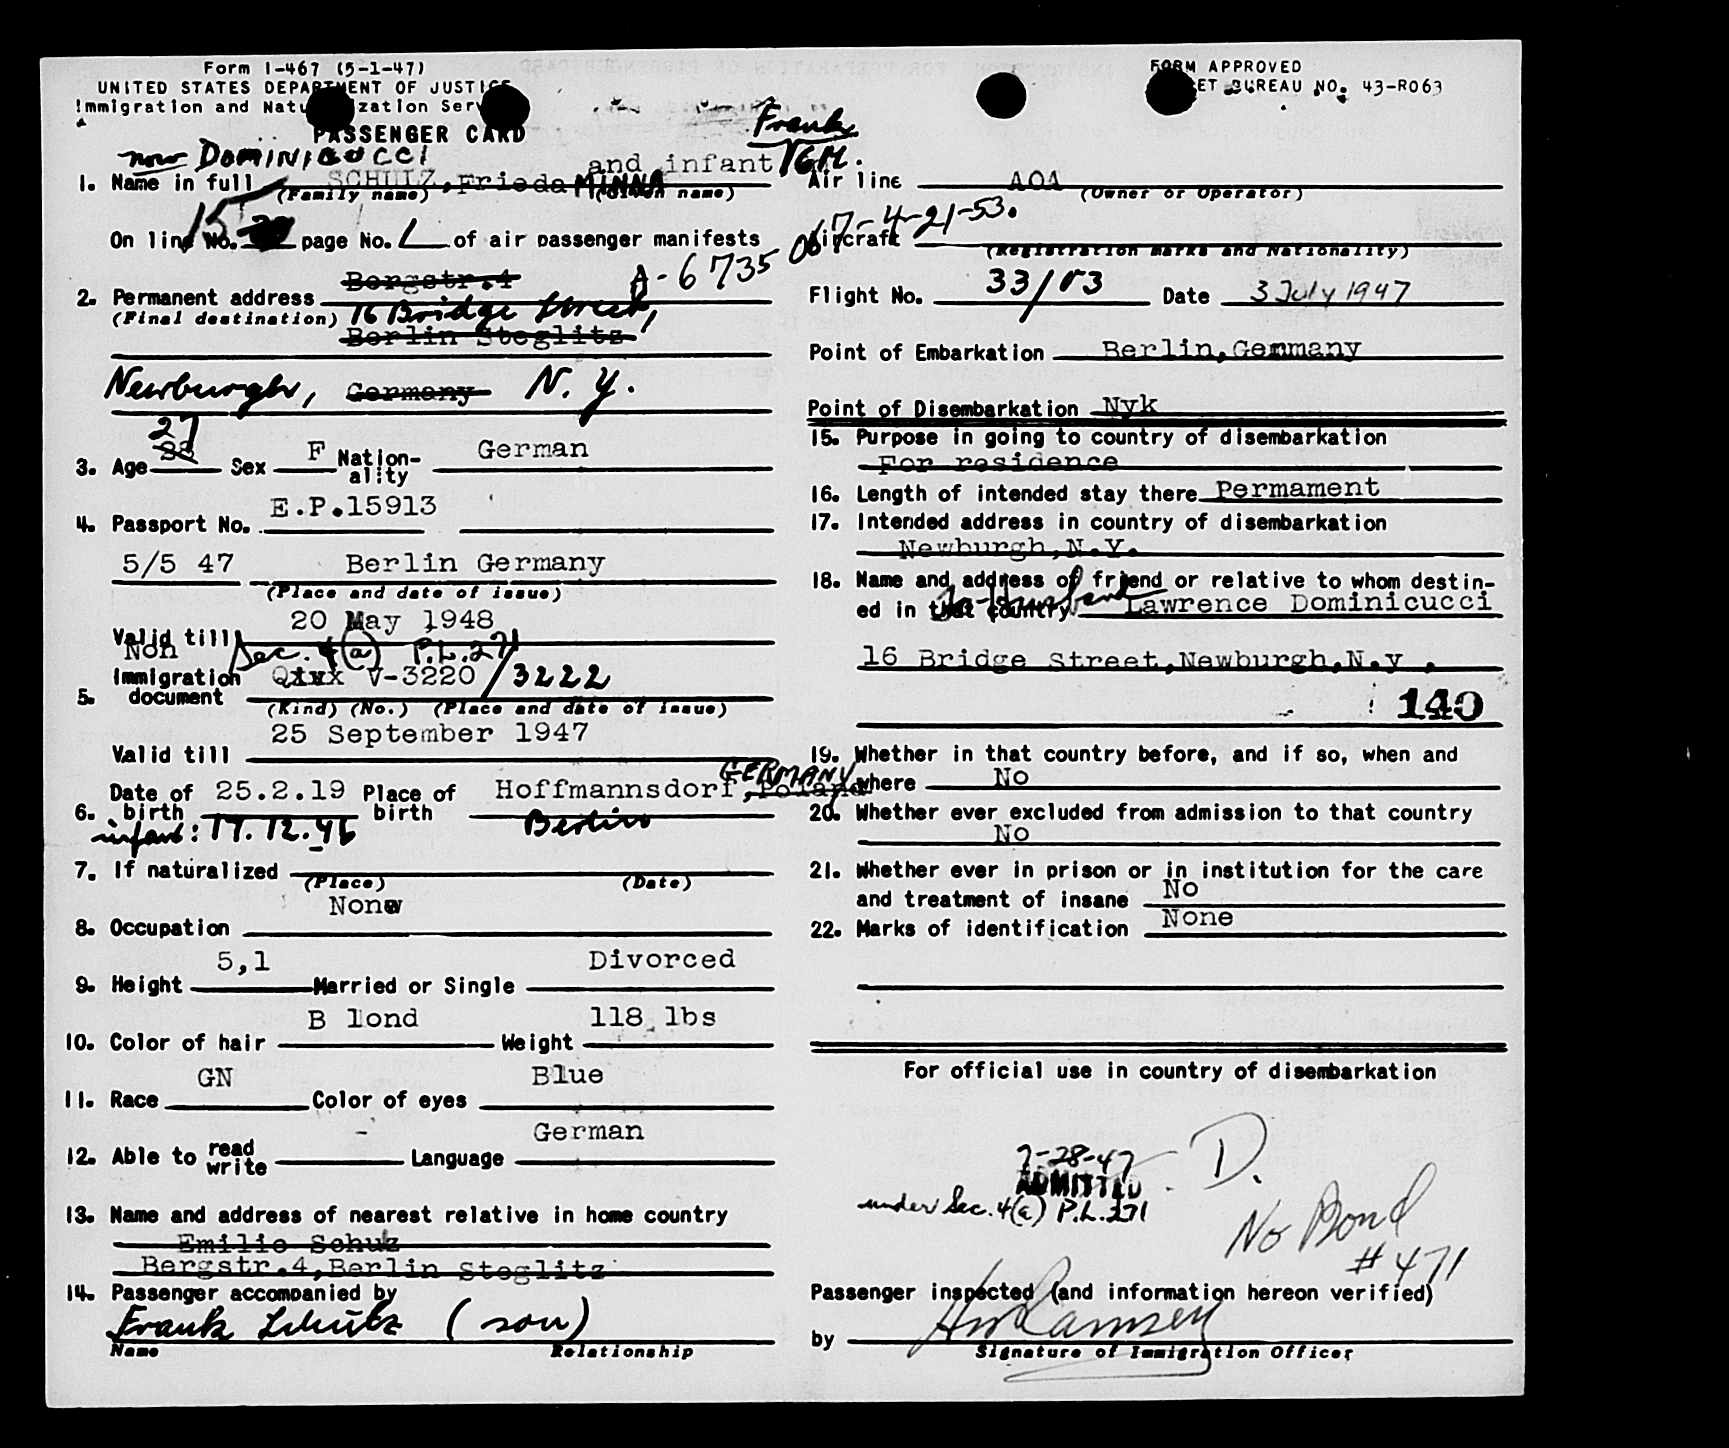 Form I-467 (5-1-47)
UNITED STATES DEPARTMENT OF JUSTICE
Immigration and Naturalization Serv
PASSENGER CARD
now DOMINICUCCI
1. Name in full SCHULZ, Frieda MINNA and infant Frank
(Family name) (Given name)
On line No. 15 page No. 1 of air passenger manifests
A-6735 067-4-21-53.
2. Permanent address Bergstr.4
(Final destination) 16 Bridge Street,
Berlin Steglitz
Newburgh, Germany N. Y.
27
3. Age 38 Sex F Nationality German
4. Passport No. E.P.15913
5/5 47 Berlin Germany
(Place and date of issue)
Valid till 20 May 1948
Non Sec. 4(a) P.L.271
5. Immigration document V-3220/3222
(Kind) (No.) (Place and date of issue)
Valid till 25 September 1947
GERMANY
6. Date of birth 25.2.19 Place of birth Hoffmannsdorf, Poland
infant: 17.12.46 Berlin
7. If naturalized
(Place) (Date)
8. Occupation None
9. Height 5,1 Married or Single Divorced
10. Color of hair B lond Weight 118 lbs
11. Race GN Color of eyes Blue
12. Able to read write Language German
13. Name and address of nearest relative in home country
Emilie Schuz
Bergstr.4,Berlin Steglitz
14. Passenger accompanied by
Frank Schülz (son)
Name Relationship
FORM APPROVED
ET BUREAU NO. 43-R063
Air line AOA
(Owner or Operator)
Aircraft
(Registration marks and Nationality)
Flight No. 33/V3 Date 3 July 1947
Point of Embarkation Berlin,Germany
Point of Disembarkation Nyk
15. Purpose in going to country of disembarkation
For residence
16. Length of intended stay there Permament
17. Intended address in country of disembarkation
Newburgh,N.Y.
18. Name and address of friend or relative to whom destin-
ed in that country To-Husband Lawrence Dominicucci
16 Bridge Street,Newburgh,N.y .
140
19. Whether in that country before, and if so, when and
where No
20. Whether ever excluded from admission to that country
No
21. Whether ever in prison or in institution for the care
and treatment of insane No
22. Marks of identification None
For official use in country of disembarkation
7-28-47 D.
ADMITTED
under Sec. 4(a) P.L.271
No Bond
#471
Passenger inspected (and information hereon verified)
by Ramsey
Signature of Immigration Officer